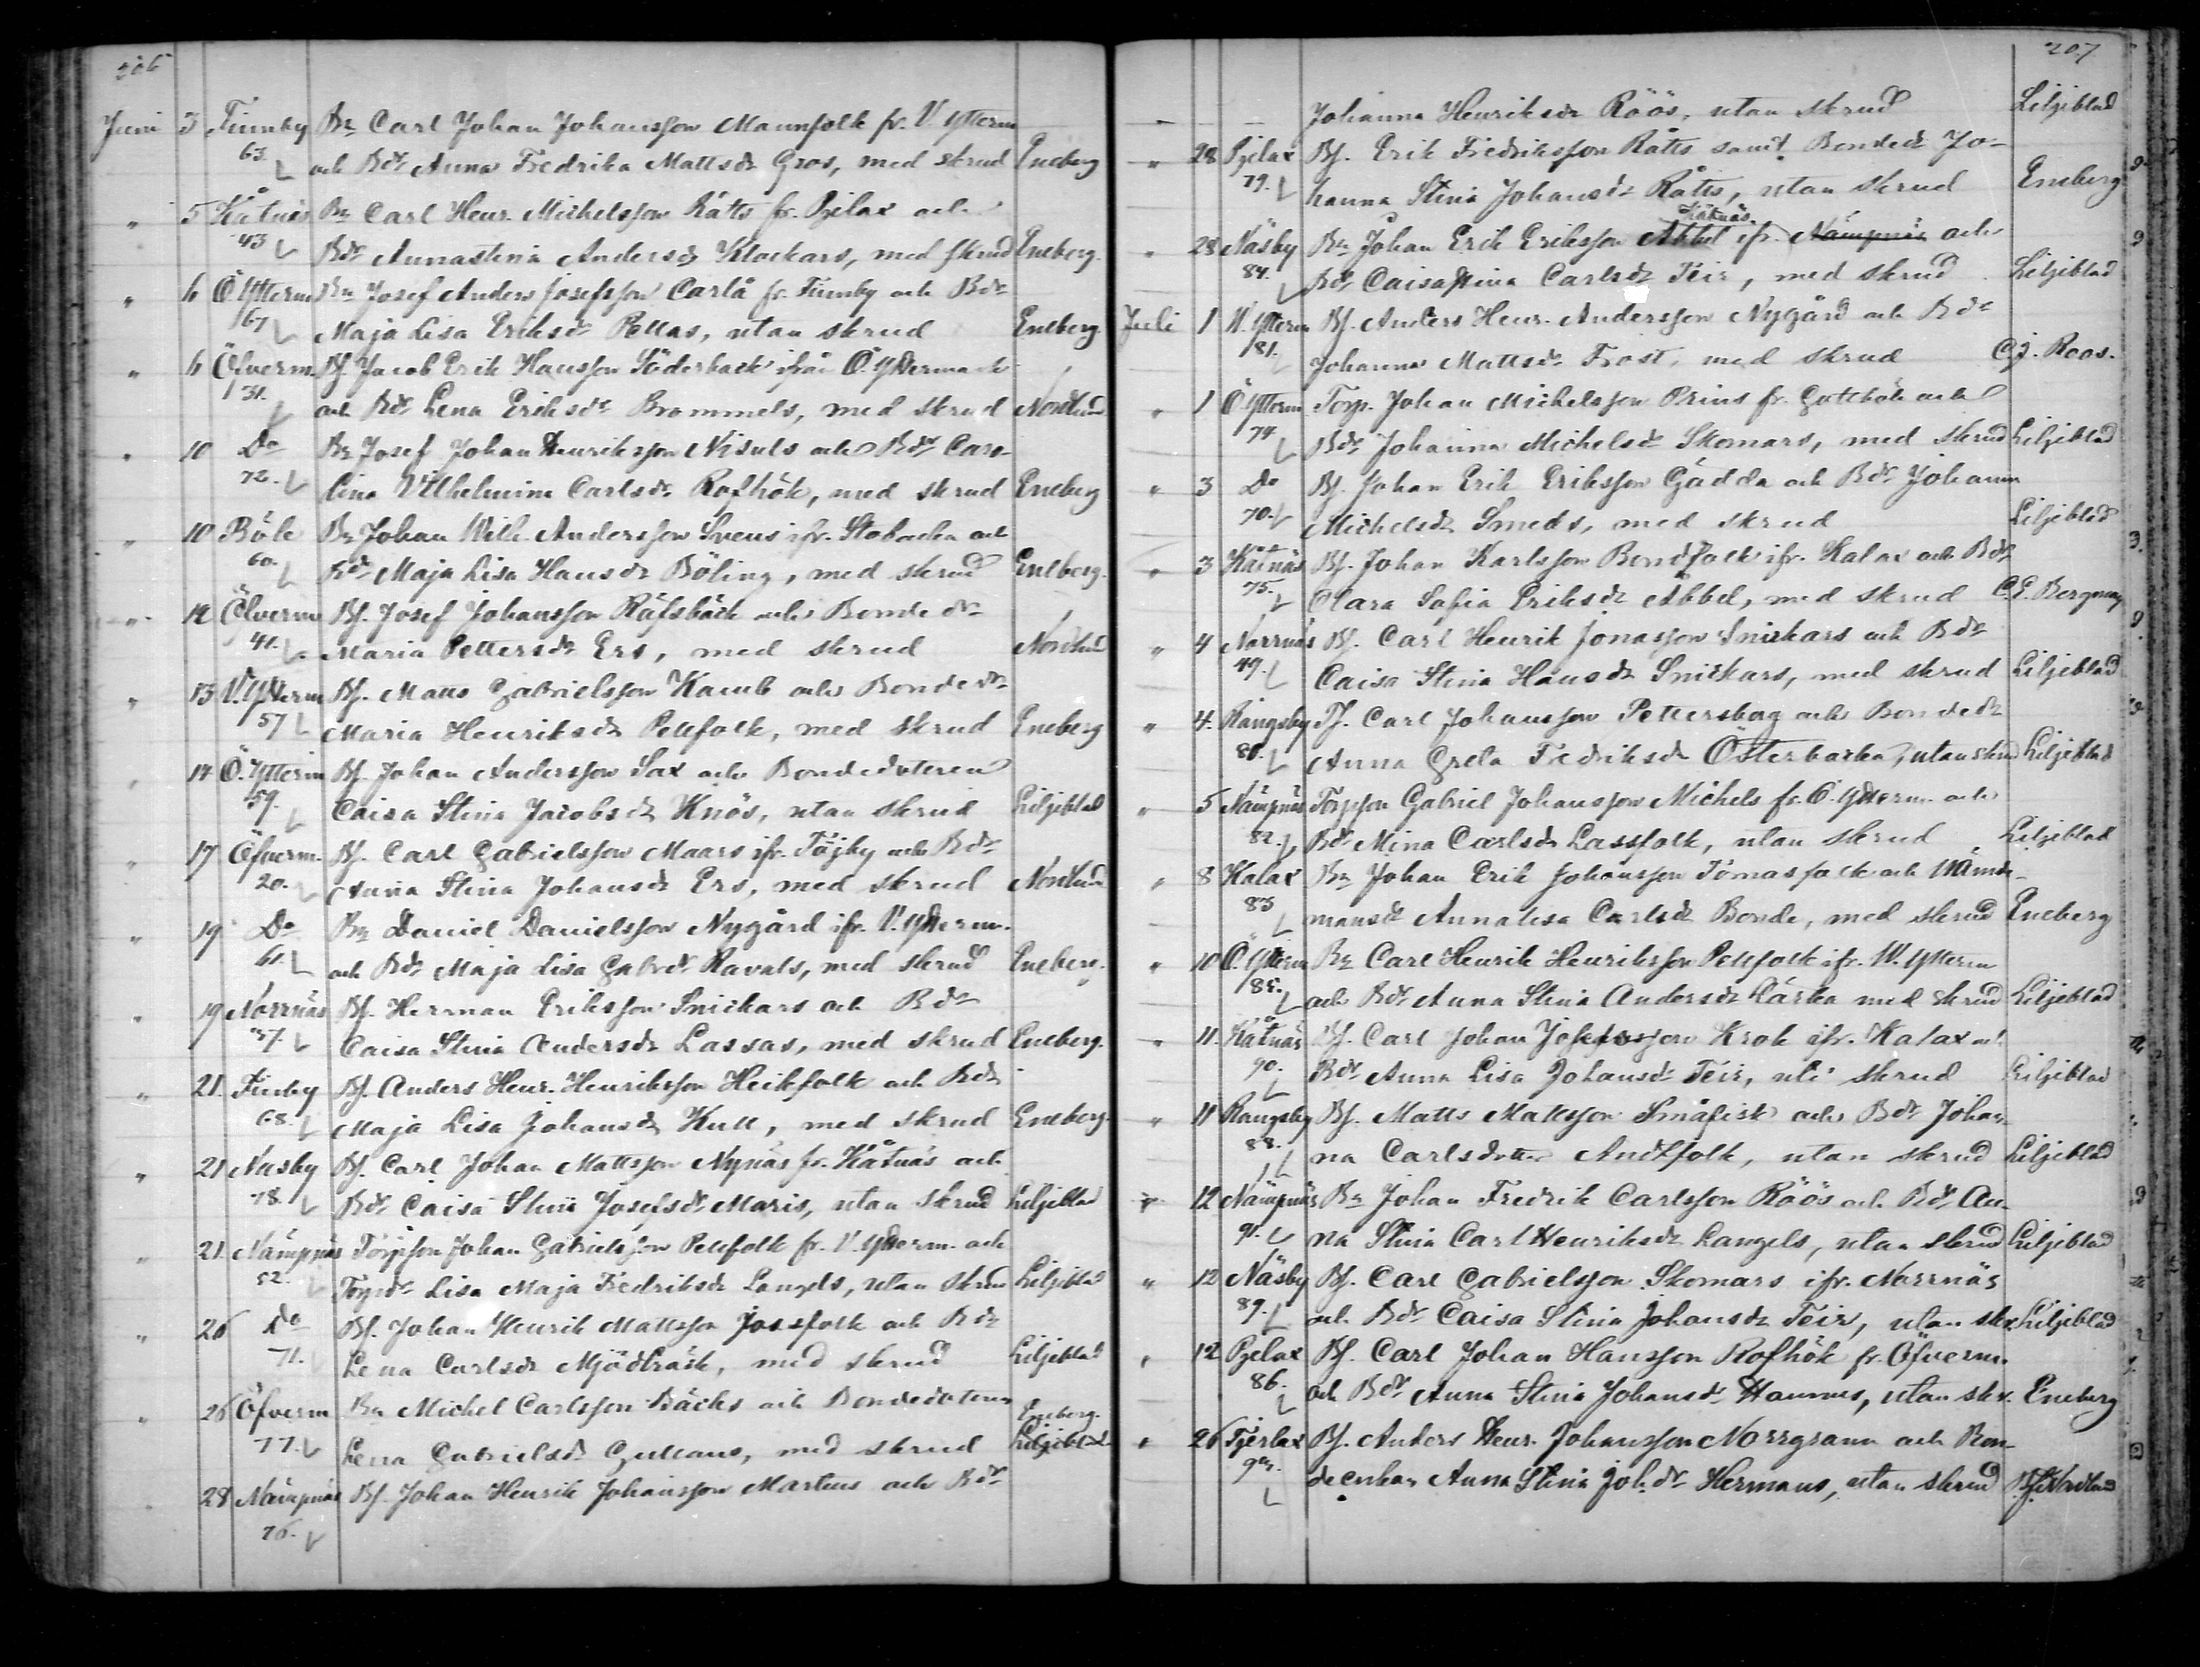 206
Juni 3 Finnby Bn Carl Johan Johansson Mannfolk fr. V. Ytterm
63. och Bdr Anna Fredrika Mattsdr Gros, med skrud Eneberg
" 5 Kåtnäs Bn Carl Henr. Michelsson Råtts fr. Pjelax och
43 Bdr Annastina Andersdr Klockars, med skrud Eneberg.
" 6 Ö. Ytterm Bn Josef Anders Josefsson Carlå fr. Finnby och Bdr
67 Maja Lisa Eriksdr Pellas, utan skrud Eneberg
" 6 Öfverm. Bs. Jacob Erik Hansson Söderback ifrån Ö. Yttermark
31. och Bdr Lena Eriksdr Brommels, med skrud Nordlund
" 10 Do Bn Josef Johan Henriksson Nisuls och Bdr Caro-
72. lina Vilhelmina Carlsdr Rofhök, med skrud Eneberg
" 10 Böle Bn Johan Wilh. Andersson Svens ifr. Stobacka och
60. Bdr Maja Lisa Hansdr Böling, med skrud Eneberg.
" 12 Öfverm Bs. Josef Johansson Räfsbäck och Bondedr
41. Maria Pettersdr Ers, med skrud Nordlund
" 13 V. Ytterm Bs. Mans Gabrielsson Kamb och Bondedr
57 Maria Henriksdr Pellfolk, med skrud Eneberg
" 14 Ö. Ytterm Bs. Johan Andersson Sax och Bondedoteren
59. Caisa Stina Jacobsdr Knös, utan skrud Liljeblad
" 17 Öfverm. Bs. Carl Gabrielsson Maars ifr. Töjby och Bdr
20. Anna Stina Johansdr Ers, med skrud Nordlund
" 19 Do Bn Daniel Danielsson Nygård ifr. V. Ytterm.
61. och Bdr Maja Lisa Gabrdr Ravals, med skrud Eneberg.
" 19 Norrnäs Bs. Herman Eriksson Snickars och Bdr
37. Caisa Stina Andersdr Lassas, med skrud Eneberg.
" 21. Finby Bs. Anders Henr. Henriksson Heikfolk och Bdr
68. Maja Lisa Johansdr Kull, med skrud Eneberg.
" 21 Nasby Bs. Carl Johan Mattsson Nynäs fr. Kåtnäs och
78. Bdr Caisa Stina Josefsdr Maris, utan skrud Liljeblad
" 21. Nämpnäs Torpson Johan Gabrielsson Pellfolk fr. V. Ytterm. och
52. Torpdr Lisa Maja Fredriksdr Langels, utan skrud Liljeblad
" 26 Do Bs. Johan Henrik Mattsson Jossfolk och Bdr
71. Lena Carlsdr Mjödträsk, med skrud Liljeblad
" 26 Öfverm Bn Michel Carlsson Bäcks och Bondedotteren Eneberg.
77. Lena Gabrielsdr Gullans, med skrud Liljeblad
28 Nämpnäs Bs. Johan Henrik Johansson Martens och Bdr
76.
207
Johanna Henriksdr Röös, utan skrud Liljeblad
" 28 Pjelax Bs. Erik Fredriksson Råtts samt Bondedr Jo-
79. hanna Stina Johansdr Råtts, utan skrud Eneberg
Kåtnäs
" 28 Näsby Bn Johan Erik Eriksson Abbel ifr. Nämpnäs och
84. Bdr Caisastina Carlsdr Teir, med skrud Liljeblad
Juli 1 V. Ytterm Bs. Anders Henr. Andersson Nygård och Bdr
81. Johanna Mattsdr Frost, med skrud C. J. Roos.
" 1 Ö. Ytterm Torp. Johan Michelsson Prins fr. Gottböle och
74 Bdr Johanna Michelsdr Skomars, med skrud Liljeblad
" 3 Do Bs. Johan Erik Eriksson Gädda och Bdr Johanna
70. Michelsdr Smeds, med skrud Liljeblad
" 3 Kåtnäs Bs. Johan Karlsson Bondfolk ifr. Kalax och Bdr
75. Clara Sofia Eriksdr Abbel, med skrud C. E. Bergman
" 4 Norrnäs Bs. Carl Henrik Jonasson Snickars och Bdr
49. Caisa Stina Hansdr Snickars, med skrud Liljeblad
" 4. Rangsby Ts. Carl Johansson Pettersborg och Bondedr
80. Anna Greta Fredriksdr Österbacka, utan skrud Liljeblad
" 5 Nämpnäs Torpson Gabriel Johansson Michels fr. Ö. Ytterm. och
82. Bdr Mina Carlsdr Lassfolk, utan skrud Liljeblad
" 8 Kalax Bn Johan Erik Johansson Tomasfolk och Nämde-
83 mansdr Annalisa Carlsdr Bonde, med skrud Eneberg
" 10 Ö. Ytterm Bn Carl Henrik Henriksson Pellfolk ifr. W. Ytterm
85. och Bdr Anna Stina Andersdr Lärka med skrud Liljeblad
" 11. Kåtnäs Bs. Carl Johan Josefsson Krok ifr. Kalax och
90. Bdr Anna Lisa Johansdr Teir, uti skrud Liljeblad
" 11 Rangsby Bs. Matts Mattsson Småfisk och Bdr Johan-
88. na Carlsdotter Andfolk, utan skrud Liljeblad
" 12 Nämpnäs Bn Johan Fredrik Carlsson Röös och Bdr An-
91. na Stina Carl Henriksdr Langels, utan skrud Liljeblad
" 12 Näsby Bs. Carl Gabrielsson Skomars ifr. Norrnäs
89. och Bdr Caisa Stina Johansdr Teir, utan skr. Liljeblad
" 12 Pjelax Bs. Carl Johan Hansson Rofhök fr. Öfverm.
86. och Bdr Anna Stina Johansdr Hannus, utan skr. Eneberg
" 26 Tjerlax Bs. Anders Henr. Johansson Norrgrann och Bon-
deenkan Anna Stina Joh.dr Hermans, utan skrud Nordlund